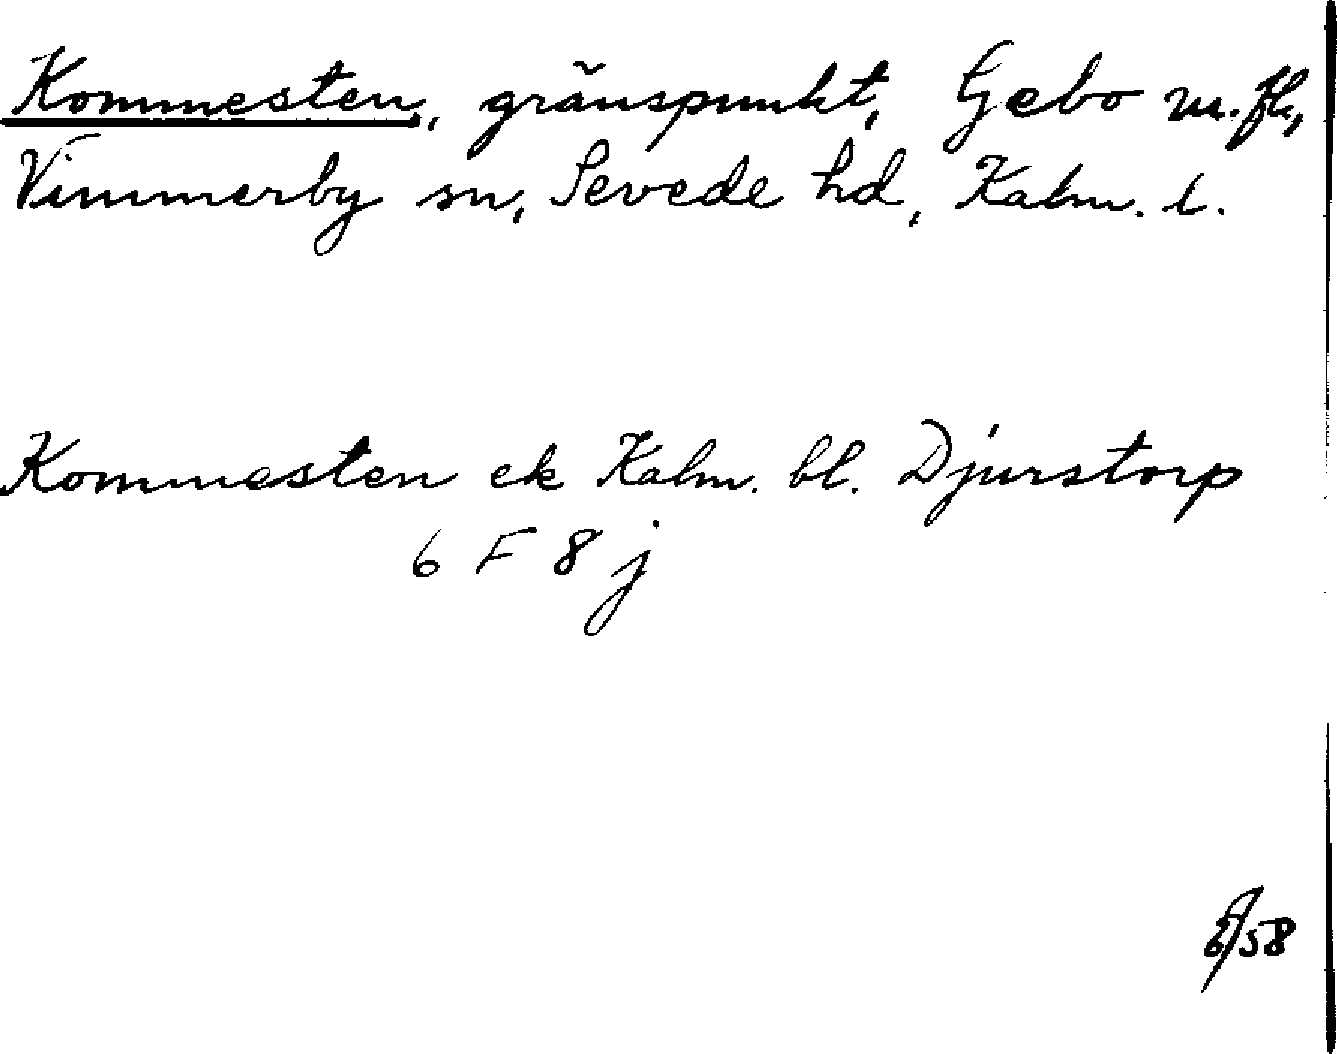 Kommesten, gränspunkt, Gebo m. fl.,
Vimmerby sn, Sevede hd, Kalm. l.
Kommesten ek Kalm. bl. Djurstorp
6 F 8 j